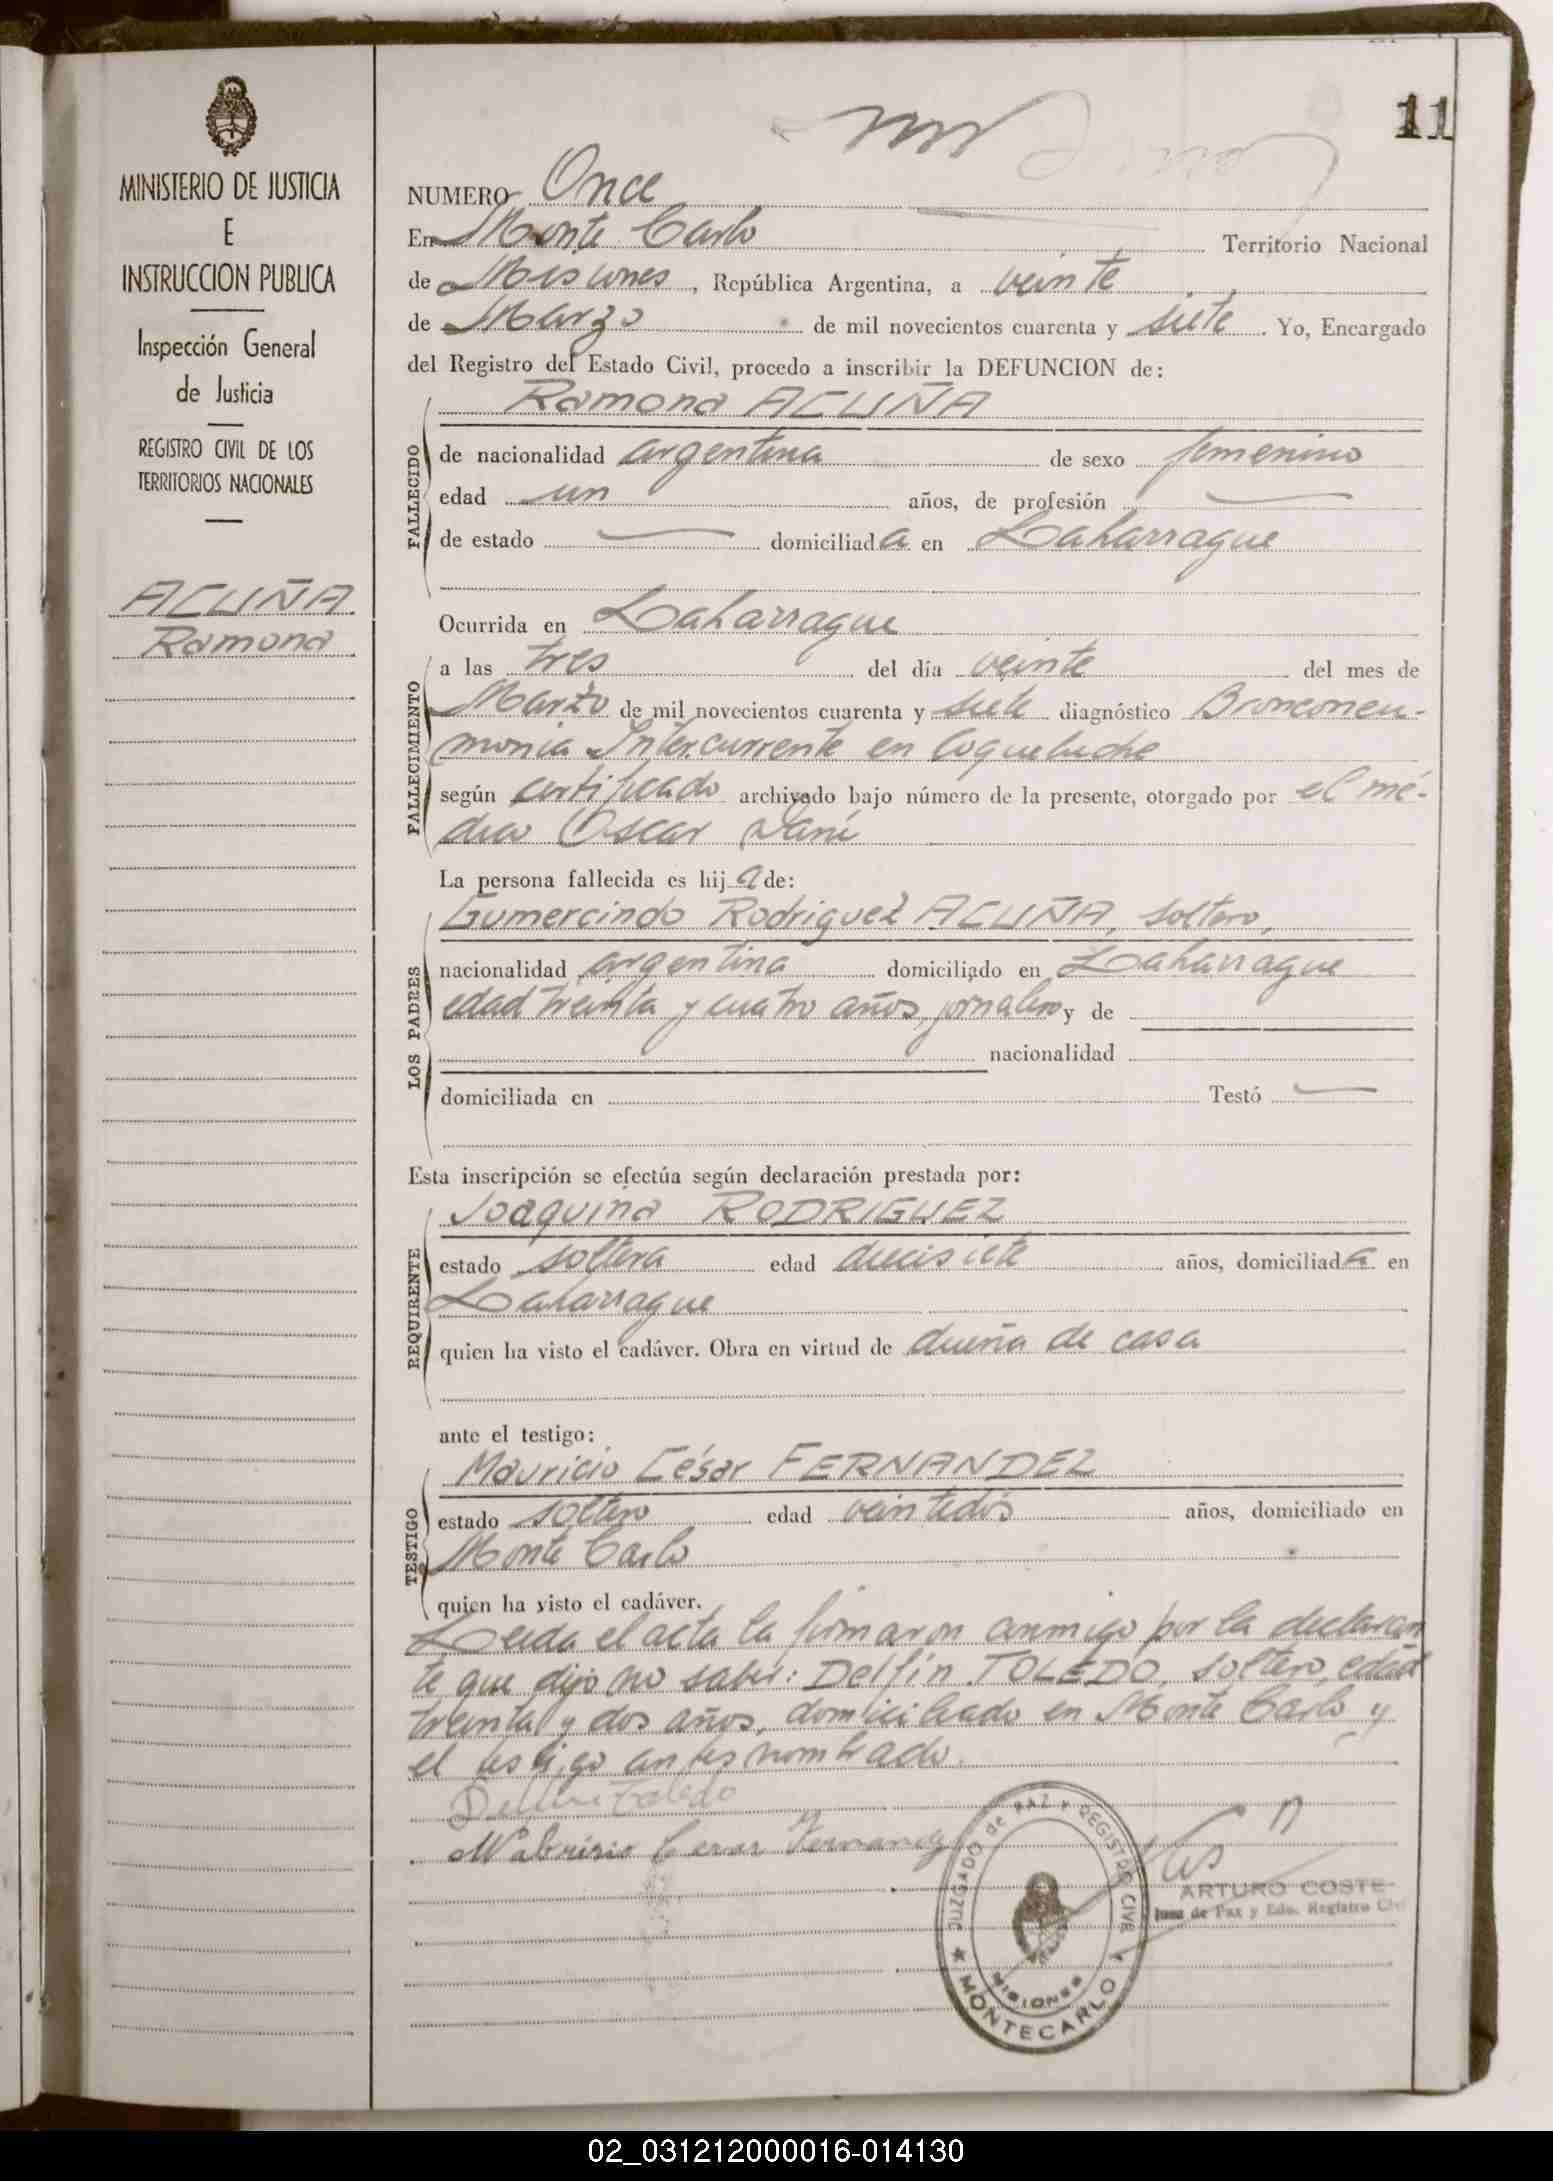 11
MINISTERIO DE JUSTICIA
E
INSTRUCCION PUBLICA
Inspección General
de Justicia
REGISTRO CIVIL DE LOS
TERRITORIOS NACIONALES
ACUÑA
Ramona
NUMERO Once
En Monte Carlo Territorio Nacional
de Misiones, República Argentina, a veinte
de Marzo de mil novecientos cuarenta y siete. Yo, Encargado
del Registro del Estado Civil, procedo a inscribir la DEFUNCION de:
FALLECIDO
Ramona ACUÑA
de nacionalidad argentina de sexo femenino
edad un años, de profesión —
de estado — domiciliada en Laharrague
Ocurrida en Laharrague
FALLECIMIENTO
a las tres del día veinte del mes de
Marzo de mil novecientos cuarenta y siete diagnóstico Bronconeu-
monia Intercurrente en Coqueluche
según certificado archivado bajo número de la presente, otorgado por el mé-
dico Oscar
La persona fallecida es hija de:
LOS PADRES
Gumercindo Rodriguez ACUÑA, soltero,
nacionalidad argentina domiciliado en Laharrague
edad treinta y cuatro años, jornalero y de
nacionalidad
domiciliada en Testó —
Esta inscripción se efectúa según declaración prestada por:
REQUIRENTE
Joaquina RODRIGUEZ
estado soltera edad diecisiete años, domiciliada en
Laharrague
quien ha visto el cadáver. Obra en virtud de dueña de casa
ante el testigo:
TESTIGO
Mauricio César FERNANDEZ
estado soltero edad veintedós años, domiciliado en
Monte Carlo
quien ha visto el cadáver.
Leida el acta la firmaron conmigo por la declaran
te que dijo no saber: Delfín TOLEDO, soltero, edad
treinta y dos años, domiciliado en Monte Carlo y
el testigo antes nombrado.
Delfin Toledo
Mabrisio Cesar Fernandez
JUZGADO de PAZ Y REGISTRO CIVIL
MISIONES
★ MONTECARLO ★
ARTURO COSTE
Juez de Paz y Edo. Registro Civil
02_031212000016-014130